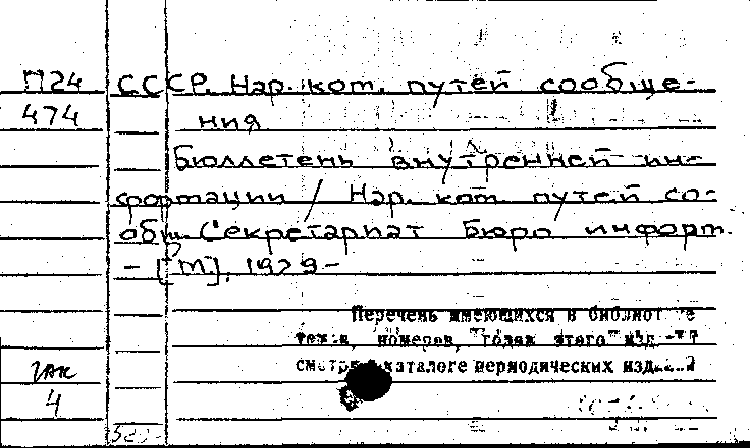 П24 СССР. Нар. ком. путей сообще-
474 ния
Бюллетень внутренней ин-
формации / Нар. ком. путей со-
общ. Секретариат Бюро информ.
– [М], 1929 –
Перечень имеющихся в библиот
номеров, годах этого
каталоге периодических
4